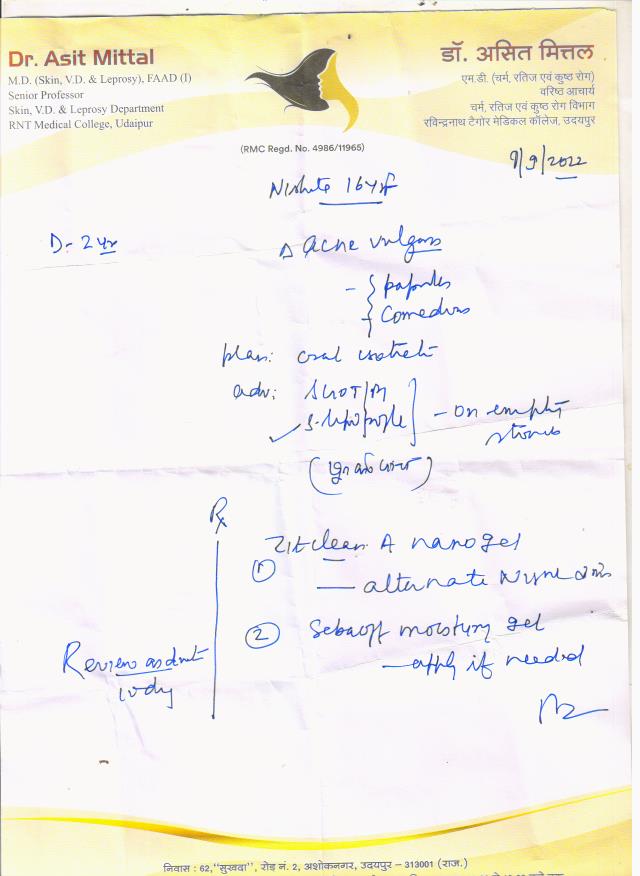 Dr. Asit Mittal
M.D. (Skin, V.D. & Leprosy), FAAD (I)
Senior Professor
Skin, V.D. & Leprosy Department
RNT Medical College, Udaipur
डॉ. असित मित्तल
एम.डी. (चर्म, रतिज एवं कुष्ठ रोग)
वरिष्ठ आचार्य
चर्म, रतिज एवं कुष्ठ रोग विभाग
रविन्द्रनाथ टैगोर मेडिकल कॉलेज, उदयपुर
(RMC Regd. No. 4986/11965)
9/9/2022
16 yr
D - 2 yr
Δ acne vulgaris
- papules
comedones
plan: oral
adv: SGOT/PT
S. lipid profile
- on empty
Rx
① Zitclean A nanogel
— alternate
② Seba off moisture gel
— apply if needed
Review
10 day
निवास : 62,"सुखवदा", रोड़ नं. 2, अशोकनगर, उदयपुर – 313001 (राज.)